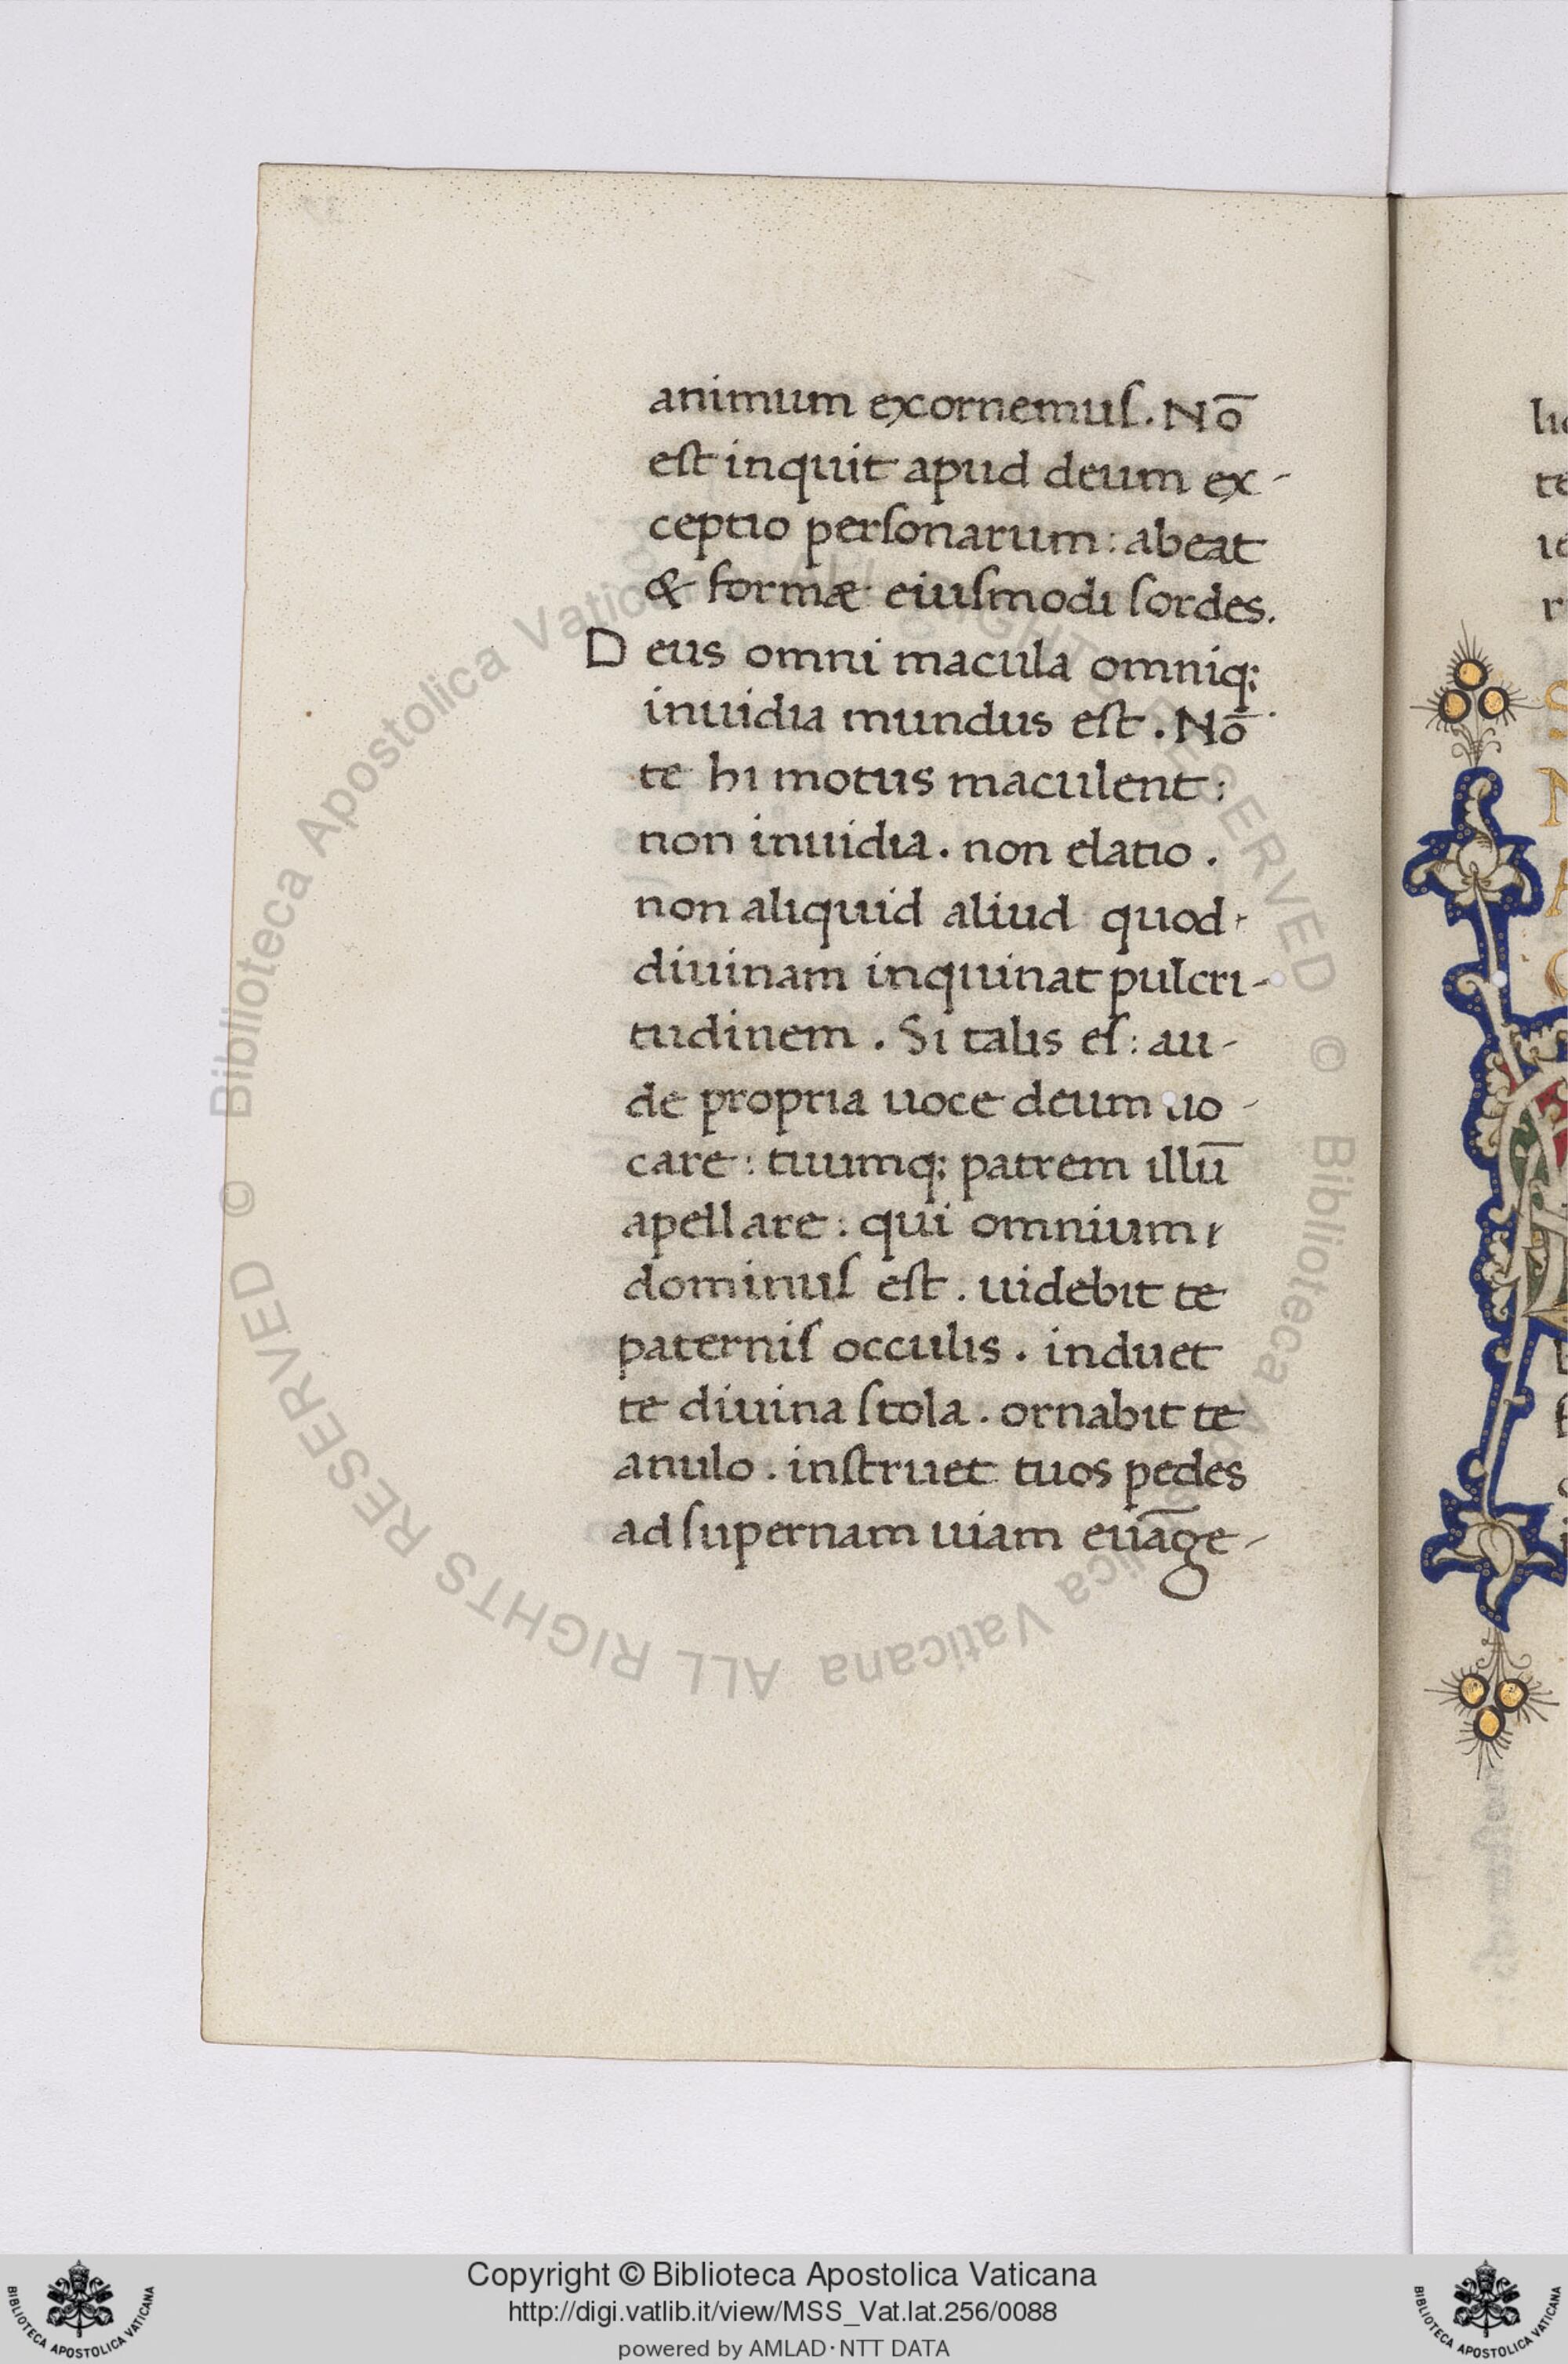 animum excornemuſ. Nō
eſt inquit apud deum ex-
ceptio perſonarum: abeat
& formæ eiuſmodi ſordes.
Deus omni macula omniq;
inuidia mundus eſt. Nō
te hi motus maculent:
non inuidia. non elatio.
non aliquid aliud quod
diuinam inquinat pulcri-
tudinem. Si talis eſ: au-
de propria uoce deum uo-
care: tuumq; patrem illū
apellare: qui omnium
dominuſ eſt. uidebit te
paterniſ occulis. induet
te diuina ſtola. ornabit te
anulo. inſtruet tuos pedes
ad ſupernam uiam euāge-
© Biblioteca Apostolica Vaticana ALL RIGHTS RESERVED © Biblioteca Apostolica Vaticana ALL RIGHTS RESERVED
Copyright © Biblioteca Apostolica Vaticana
http://digi.vatlib.it/view/MSS_Vat.lat.256/0088
powered by AMLAD·NTT DATA
BIBLIOTECA APOSTOLICA VATICANA
BIBLIOTECA APOSTOLICA VATICANA